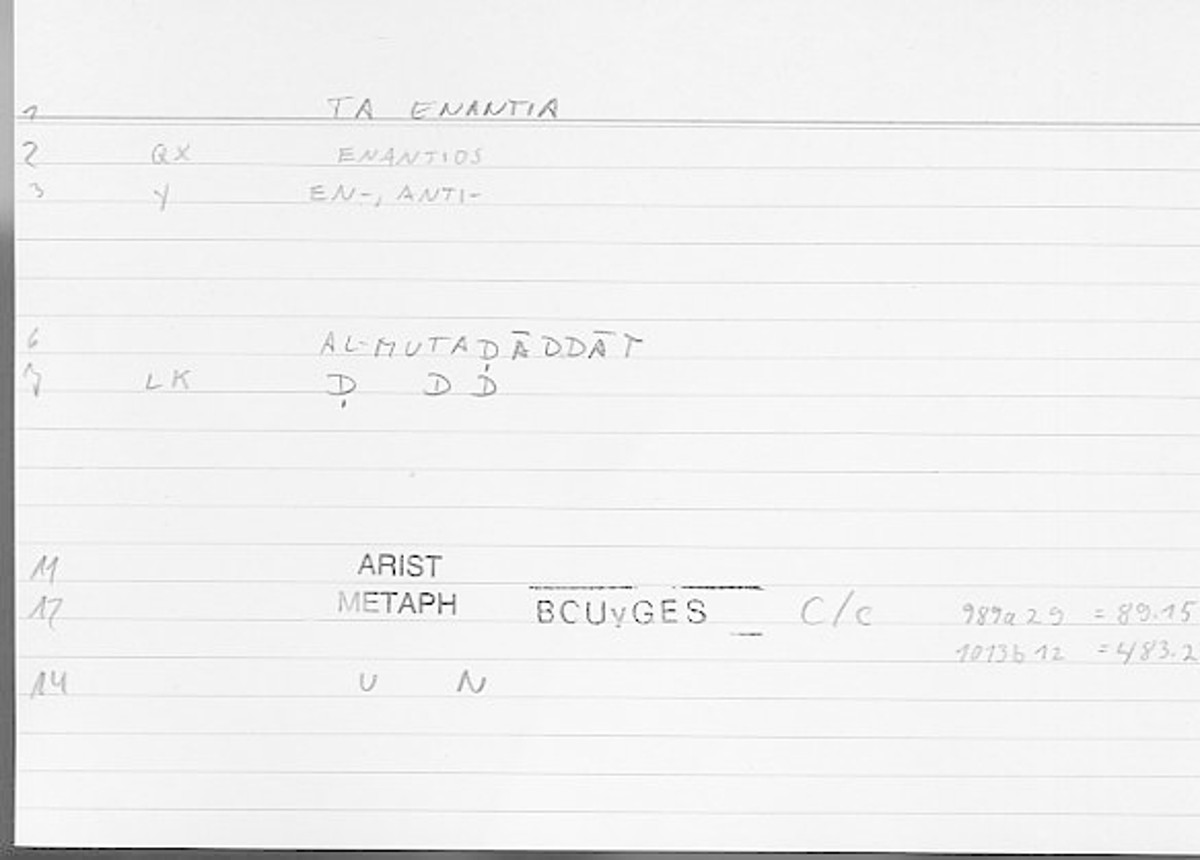 1 TA ENANTIA
2 QX ENANTIOS
3 Y EN-, ANTI-
6 AL-MUTAḌĀDDĀT
7 LK Ḍ D D
11 ARIST
12 METAPH BCUyGES C/c 989a29 = 89.15
1013b12 = 483.2
14 U N